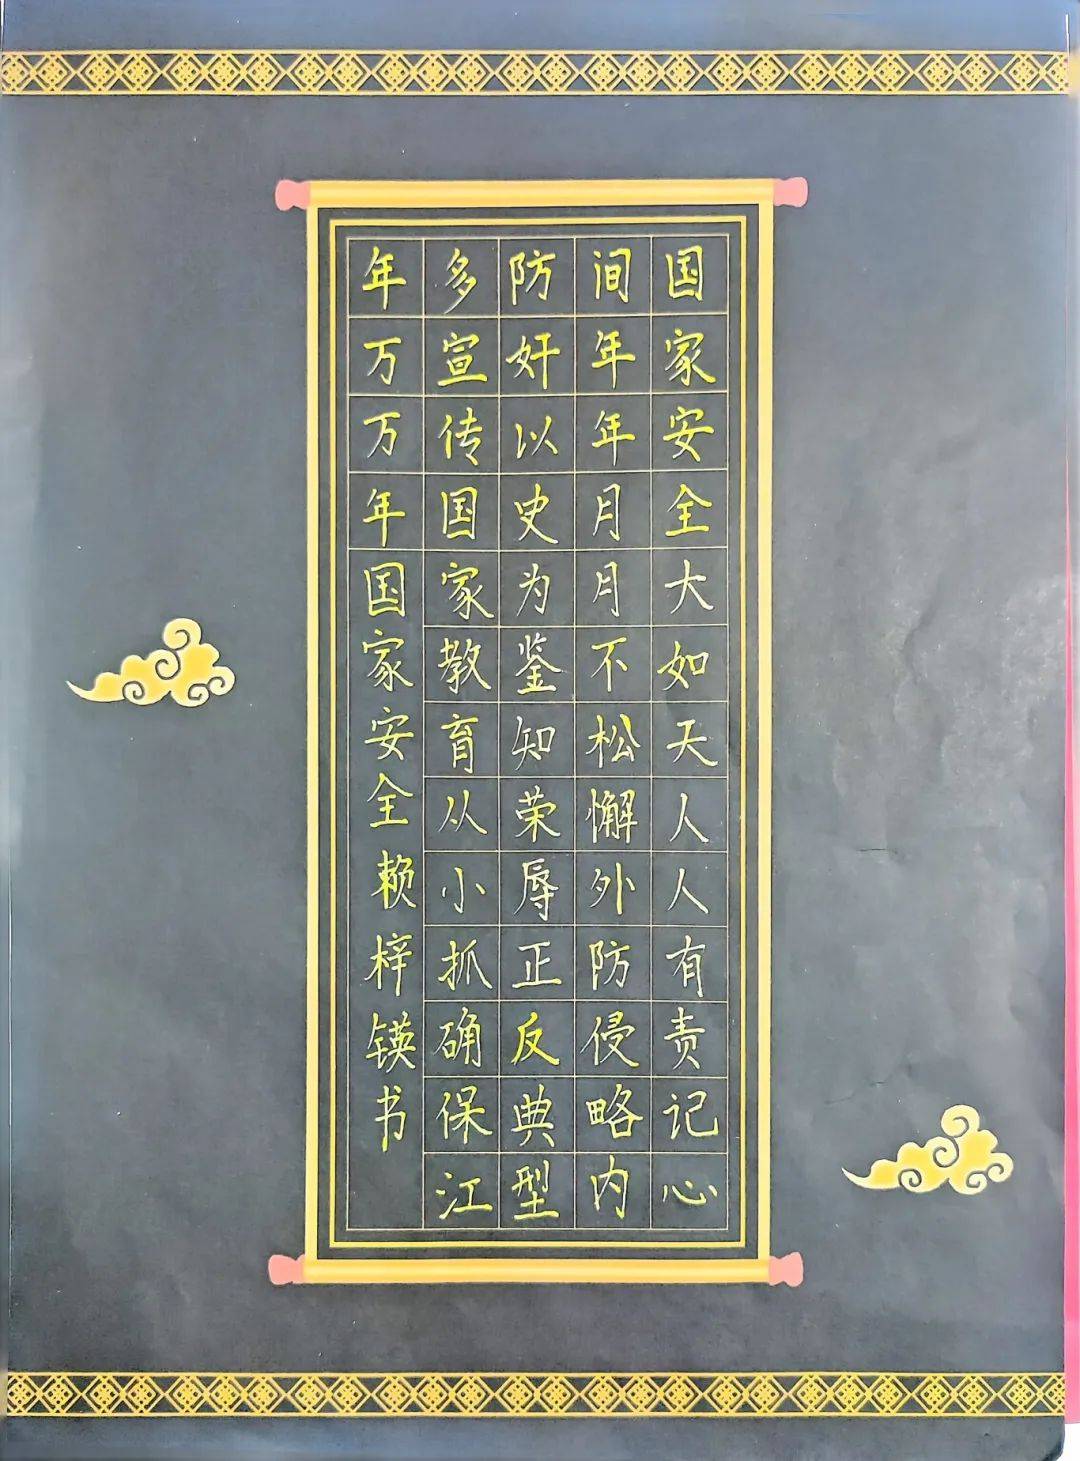 国家安全大如天人人有责记心
间年年月月不松懈外防侵略内
防奸以史为鉴知荣辱正反典型
多宣传国家教育从小抓确保江
年万万年国家安全赖梓锳书